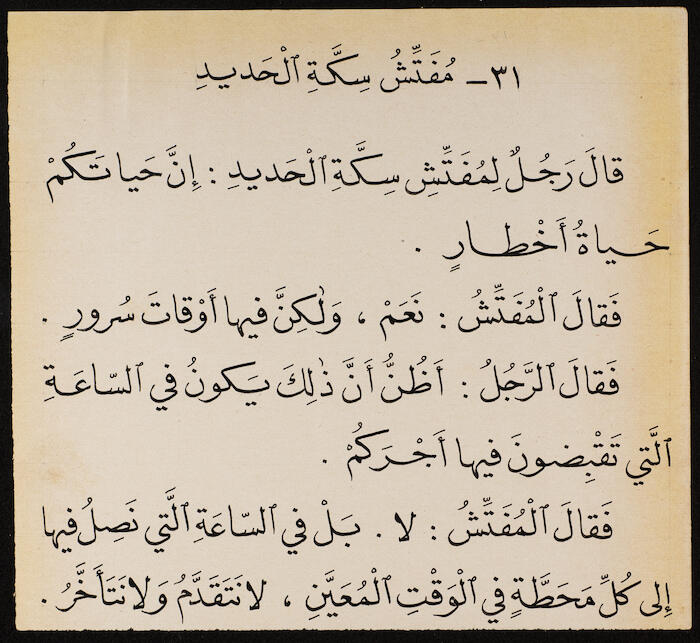 ٣١ـ مُفَتِّشُ سِكَّةِ ٱلْحَديدِ
قالَ رَجُلٌ لِمُفَتِّشِ سِكَّةِ ٱلْحَديدِ : إِنَّ حَياتَكُمْ
حَياةُ أَخْطارٍ .
فَقالَ ٱلْمُفَتِّشُ : نَعَمْ ، وَلٰكِنَّ فيها أَوْقاتَ سُرورٍ .
فَقالَ ٱلرَّجُلُ : أَظُنُّ أَنَّ ذٰلِكَ يَكونُ في ٱلسّاعَةِ
ٱلَّتي تَقْبِضونَ فيها أَجْرَكُمْ .
فَقالَ ٱلْمُفَتِّشُ : لا . بَلْ في ٱلسّاعَةِ ٱلَّتي نَصِلُ فيها
إِلى كُلِّ مَحَطَّةٍ في ٱلْوَقْتِ ٱلْمُعَيَّنِ ، لا نَتَقَدَّمُ وَلا نَتَأَخَّرُ .